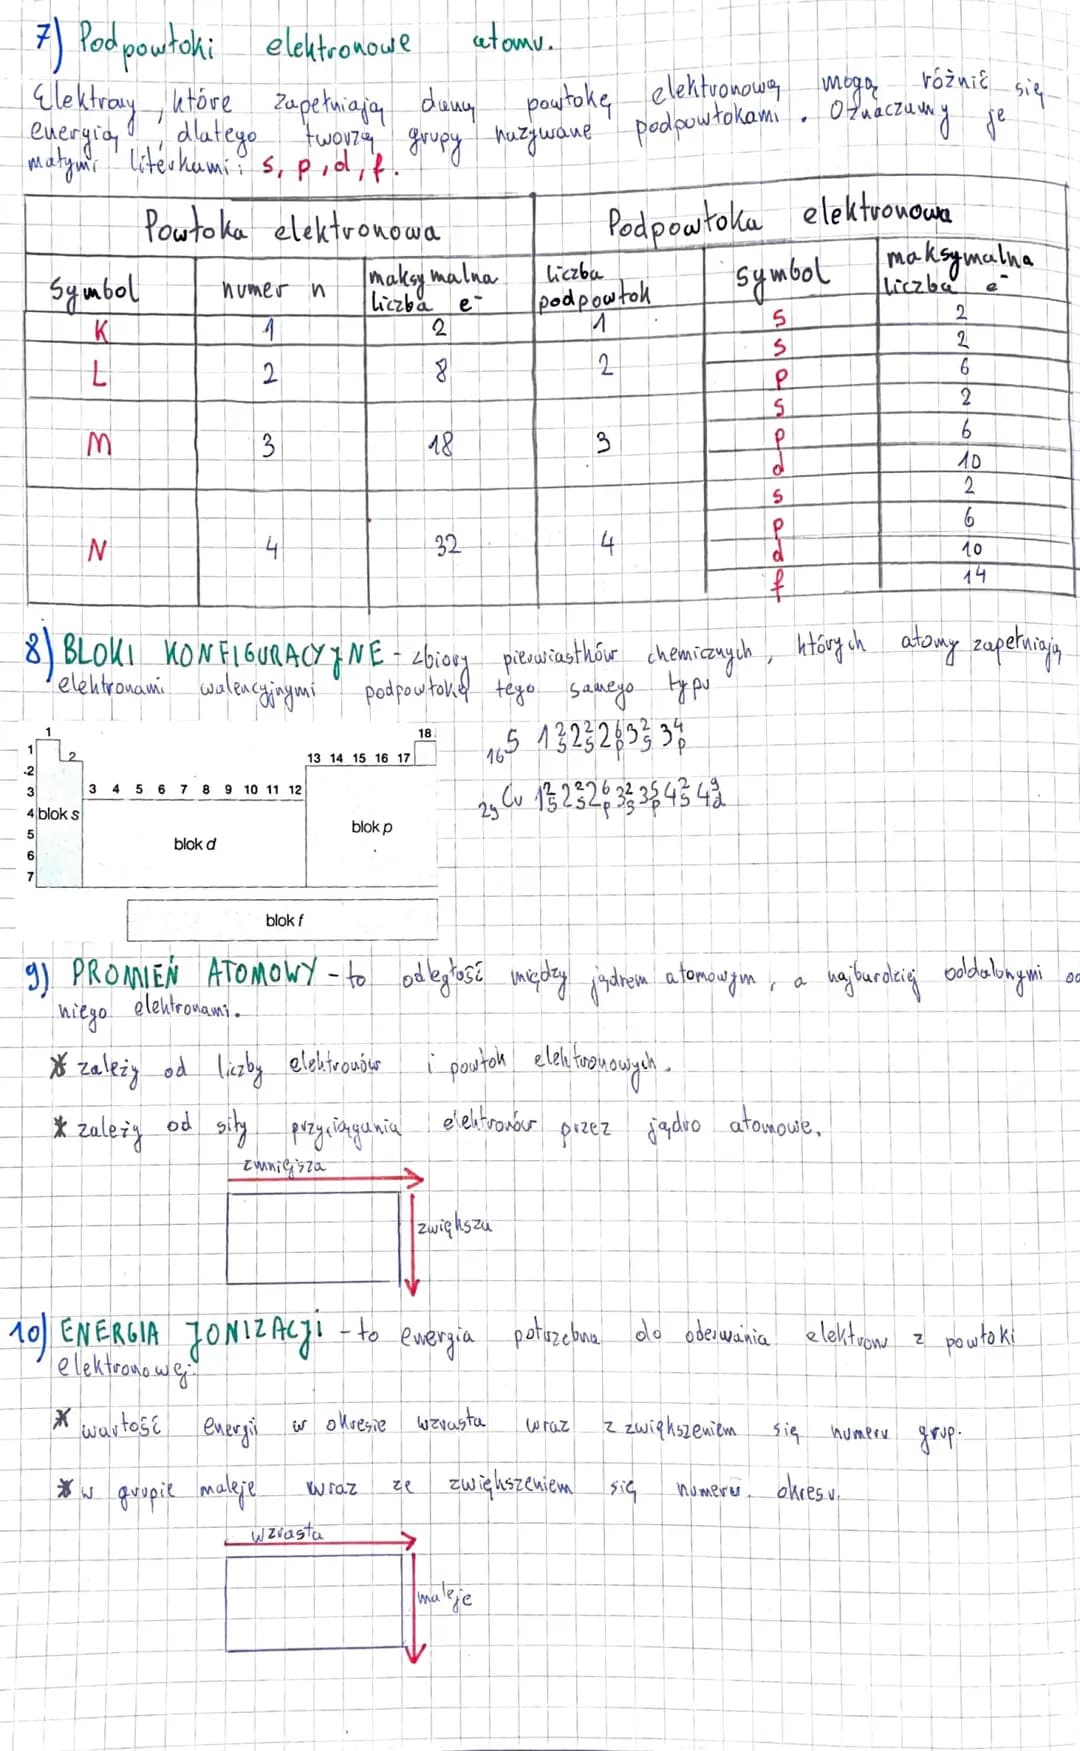 7) Podpowłoki elektronowe atomu.
Elektrony, które zapełniają daną powłokę elektronową mogą różnić się
energią, dlatego tworzą grupy nazywane podpowłokami. Oznaczamy je
małymi literkami: s, p, d, f.
Powłoka elektronowa Podpowłoka elektronowa
Symbol numer n maksymalna liczba e⁻ liczba podpowłok symbol maksymalna liczba e⁻
K 1 2 1 s 2
L 2 8 2 s 2
p 6
M 3 18 3 s 2
p 6
d 10
N 4 32 4 s 2
p 6
d 10
f 14
8) BLOKI KONFIGURACYJNE - zbiory pierwiastków chemicznych, których atomy zapełniają
elektronami walencyjnymi podpowłokę tego samego typu
1 2 3 4 5 6 7 8 9 10 11 12 13 14 15 16 17 18
1
2
3
4
5
6
7
blok s
blok d
blok p
blok f
₁₆S 1s² 2s² 2p⁶ 3s² 3p⁴
₂₉Cu 1s² 2s² 2p⁶ 3s² 3p⁶ 4s² 4d⁹
9) PROMIEŃ ATOMOWY - to odległość między jądrem atomowym, a najbardziej oddalonymi od
niego elektronami.
* zależy od liczby elektronów i powłok elektronowych.
* zależy od siły przyciągania elektronów przez jądro atomowe.
zmniejsza
zwiększa
10) ENERGIA JONIZACJI - to energia potrzebna do oderwania elektronu z powłoki
elektronowej.
* wartość energii w okresie wzrasta wraz z zwiększeniem się numeru grup.
* w grupie maleje wraz ze zwiększeniem się numeru okresu.
wzrasta
maleje